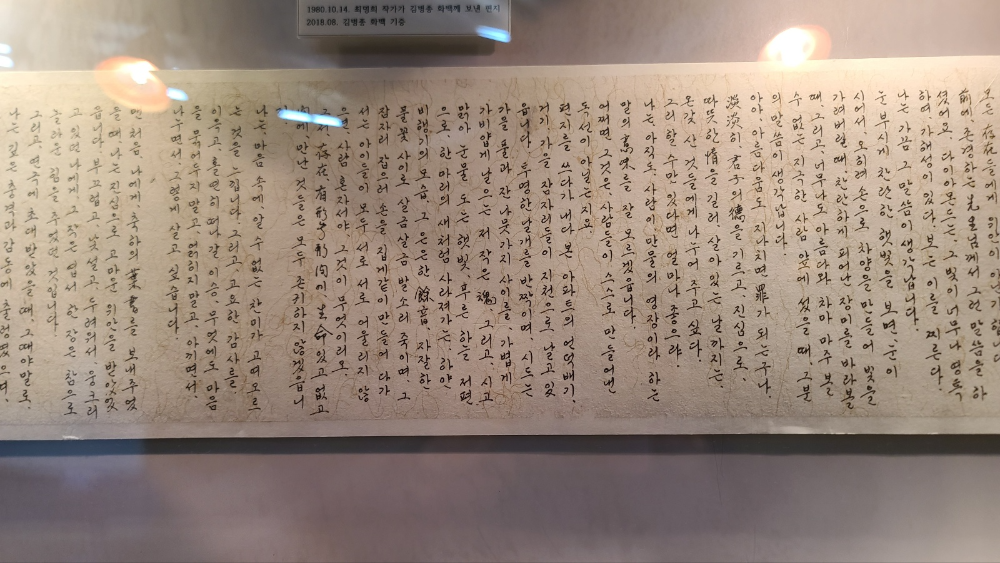 1980.10.14. 최명희 작가가 김병종 화백께 보낸 편지
2018.08. 김병종 화백 기증
모든 存在들에게 이
前에 존경하는 先生님께서 그런 말씀을 하
셨어요. 다이아몬드는 그 빛이 너무나 영특
하여, 가해성이 있다. 보는 이를 찌른다.
나는 가끔 그 말씀이 생각납니다.
눈부시게 찬란한 햇빛을 보면, 눈이
시어서, 오히려 손으로 차양을 만들어 빛을
가려버릴 때, 찬란하게 피어난 장미를 바라볼
때, 그리고, 너무나도 아름다와 차마 마주 볼
수 없는 지극한 사람 앞에 섰을 때, 그 분
의 말씀이 생각납니다.
아아, 아름다움도 지나치면 罪가 되는구나.
淡淡히 君子의 德을 기르고, 진심으로,
따뜻한 情을 길러, 살아있는 날까지는,
온갖 산 것들에게 나누어 주고 싶다.
그리할 수만 있다면 얼마나 좋으랴.
나는 아직도, 사람이, 만물의 영장이라 하는
말의 意味를 잘 모르겠습니다.
어쩌면 그것은, 사람들이 스스로 만들어낸
독선이 아닐는지요.
편지를 쓰다가 내다 본 아파트의 언덕배기,
거기 가을 잠자리들이 지천으로 날고 있
읍니다. 투명한 날개를 반짝이며, 시드는
가을 풀과 잔 나뭇가지 사이를, 가볍게
가비얍게 날으는 저 작은 魂. 그리고, 시고
맑아 눈물 도는 햇빛, 푸르른 하늘 저편
으로 한 마리의 새처럼 사라져가는 하얀
비행기의 모습, 그 은은한 餘音, 자잘한
풀꽃 사이로 살금살금 발소리 죽이며, 그
잠자리 잡으려 손을 집게같이 만들어 다가
서는 아이들이 모두 서로 서로 어울리지 않
은 사람 혼자서야 그것이 무엇이리오.
存在, 有形, 無形 間에 生命 있고 없고
間에, 만난 것들은 모두 존귀하지 않겠읍니
까.
나는 마음 속에 알 수 없는 찬미가 고여오르
는 것을 느낍니다. 그리고, 고요한 감사를
이윽고, 홀연히 떠나갈 이승, 무엇에도 마음
을 묶어두지 말고, 얽히지 말고, 아끼면서,
나누면서, 그렇게 살고 싶습니다.
맨 처음, 나에게 축하의 葉書를 보내주었
을 때, 나는 진심으로 고마운 위안을 받았었
읍니다. 부끄럽고, 낯설고, 두려워서 웅크리
고 있던 나에게, 그 작은 엽서 한 장은 참으로
놀라운 힘을 주었던 것입니다.
그리고, 연극에 초대 받았을 때, 그때야말로,
나는, 깊은 충격과 감동에 출렁였으며,